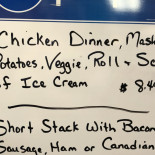 Chicken Dinner, Mash
Potatoes, Veggie, Roll & Sc
of Ice Cream $ 8.4
Short Stack With Bacon
Sausage, Ham or Canadian